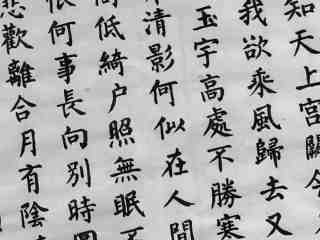 知天上宮闕今
我欲乘風歸去又
玉宇高處不勝寒
清影何似在人間
低綺户照無眠不
恨何事長向别時圓
悲歡離合月有陰